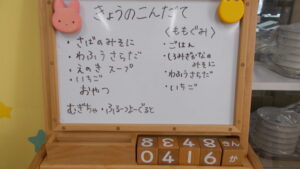 きょうのこんだて
・さばのみそに
・わふうさらだ
・えのきスープ
・いちご
おやつ
むぎちゃ・ふるーつよーぐると
〈ももぐみ〉
・ごはん
・しろみざかなの
みそに
・わふうさらだ
・いちご
0416か